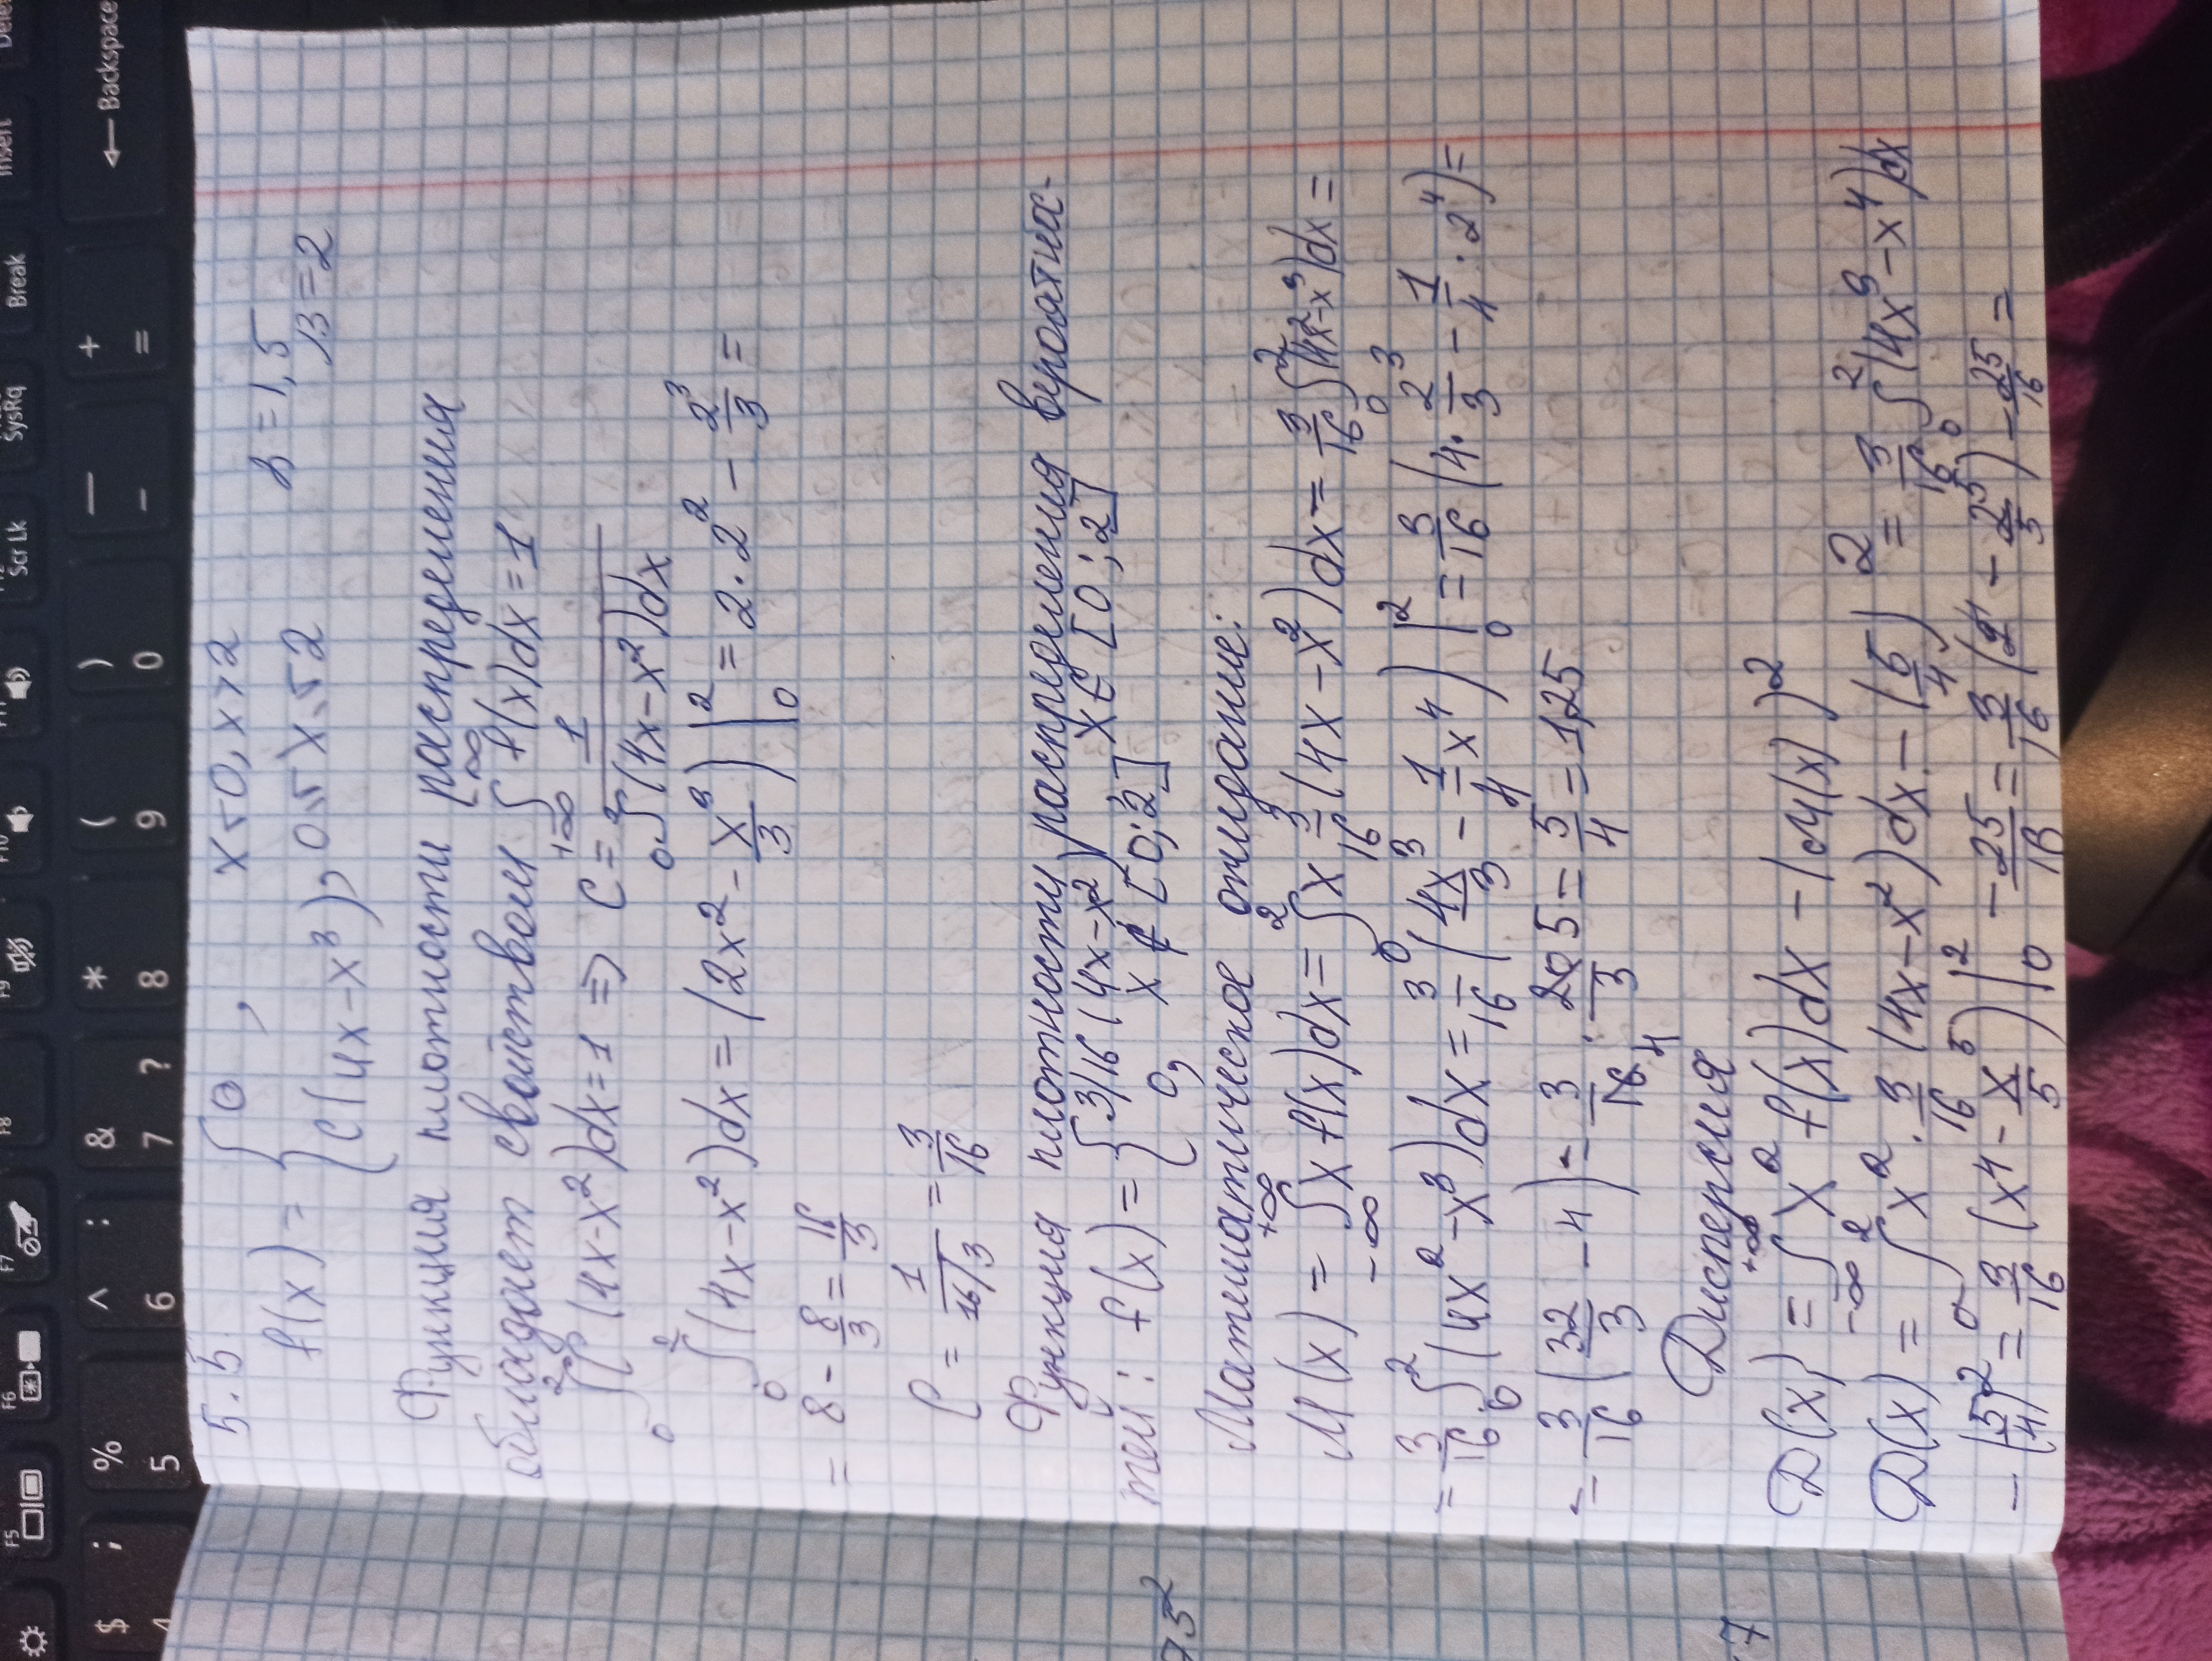 5.5.
f(x) = { 0, x ≤ 0, x > 2
c(4x - x³), 0 ≤ x ≤ 2
α = 1,5
β = 2
Функция плотности распределения
обладает свойством ∫_{+-∞}^{∞} f(x)dx = 1
∫_0^2 c(4x-x²)dx = 1 ⇒ C = 1/(∫_0^2 (4x-x²)dx)
∫_0^2 (4x-x²)dx = (2x² - x³/3)|_0^2 = 2·2² - 2³/3 =
= 8 - 8/3 = 16/3
C = 1/(16/3) = 3/16
Функция плотности распределения вероятнос-
тей: f(x) = { 3/16(4x-x²), x ∈ [0;2]
0, x ∉ [0;2]
Математическое ожидание:
M(x) = ∫_{-∞}^{+∞} x f(x)dx = ∫_0^2 x 3/16 (4x-x²)dx = 3/16 ∫_0^2 (4x²-x³)dx =
= 3/16 ∫_0^2 (4x²-x³)dx = 3/16 (4x³/3 - 1/4 x⁴)|_0^2 = 3/16 (4·2³/3 - 1/4·2⁴) =
= 3/16 (32/3 - 4) = 3/16 · 20/3 = 5/4 = 1,25
Дисперсия
D(x) = ∫_{-∞}^{+∞} x² f(x)dx - (M(x))²
D(x) = ∫_0^2 x² · 3/16 (4x-x²)dx - (5/4)² = 3/16 ∫_0^2 (4x³-x⁴)dx
- (5/4)² = 3/16 (x⁴ - x⁵/5)|_0^2 - 25/16 = 3/16 (2⁴ - 2⁵/5) - 25/16 =
Backspace
Insert
Break
SysRq
Scr Lk
+ =
— -
) 0
( 9
* 8
& 7 ?
^ 6 :
% 5
$ ;
F5
F6
F7
F8
F9
F10